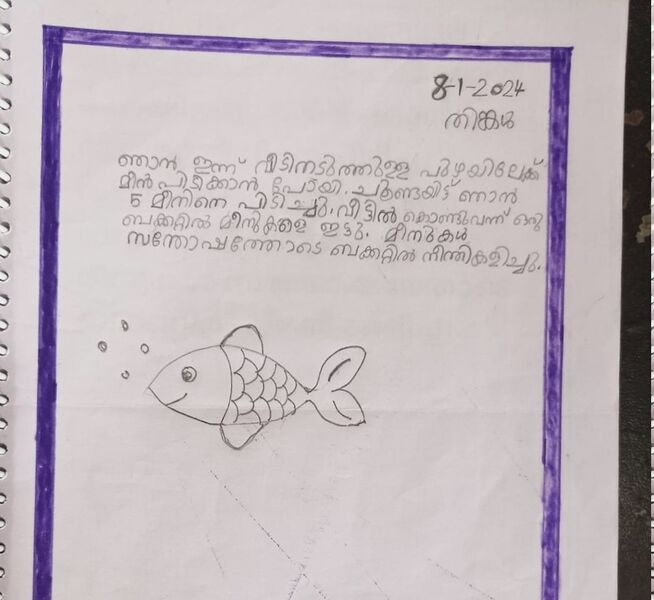 8-1-2024
തിങ്കൾ
ഞാൻ ഇന്ന് വീടിനടുത്തുള്ള പുഴയിലേക്ക്
മീൻ പിടിക്കാൻ പോയി. ചൂണ്ടയിട്ട് ഞാൻ
5 മീനിനെ പിടിച്ചു. വീട്ടിൽ കൊണ്ടുവന്ന് ഒരു
ബക്കറ്റിൽ മീനുകളെ ഇട്ടു. മീനുകൾ
സന്തോഷത്തോടെ ബക്കറ്റിൽ നീന്തികളിച്ചു.